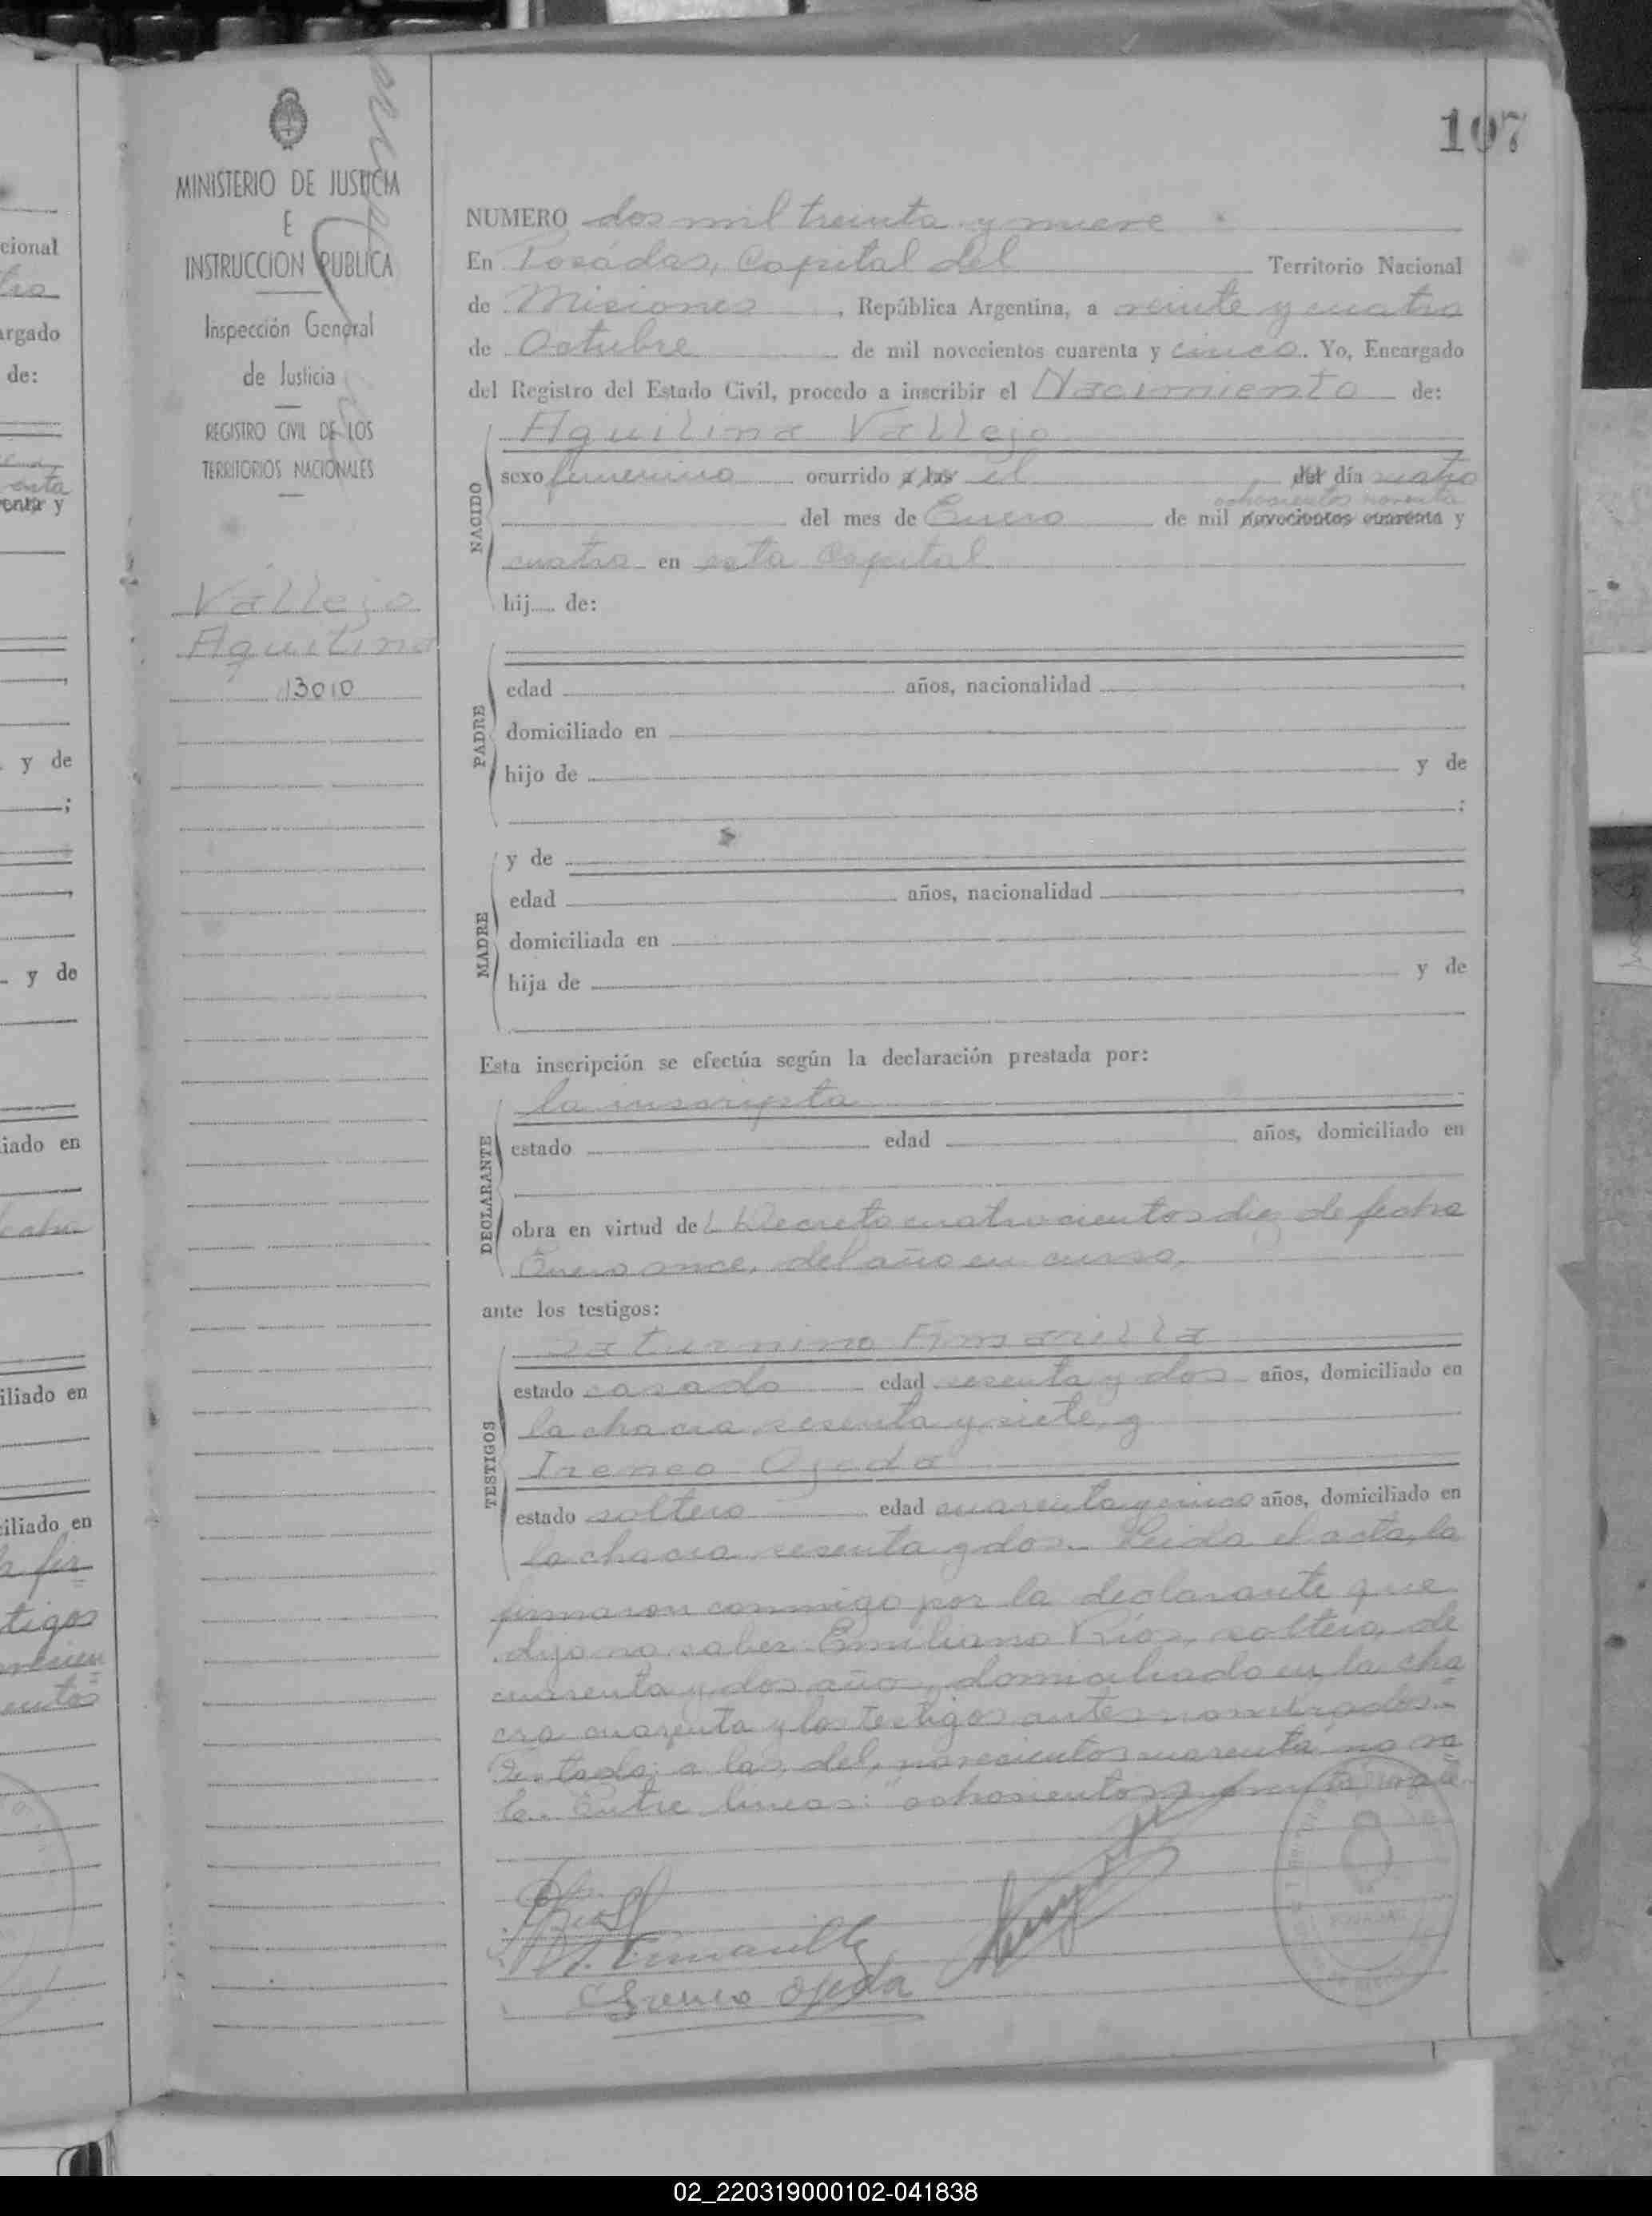 107
MINISTERIO DE JUSTICIA
E
INSTRUCCION PUBLICA
Inspección General
de Justicia
REGISTRO CIVIL DE LOS
TERRITORIOS NACIONALES
Vallejo
Aquilina
13010
NUMERO dos mil treinta y nueve
En Posadas, Capital del Territorio Nacional
de Misiones, República Argentina, a veinte y cuatro
de Octubre de mil novecientos cuarenta y cinco. Yo, Encargado
del Registro del Estado Civil, procedo a inscribir el Nacimiento de:
NACIDO
Aquilina Vallejo
sexo femenino ocurrido a las el del día cuatro
ochocientos noventa
del mes de Enero de mil novecientos cuarenta y
cuatro en esta Capital
hij de:
PADRE
edad años, nacionalidad
domiciliado en
hijo de y de
;
MADRE
y de
edad años, nacionalidad
domiciliada en
hija de y de
Esta inscripción se efectúa según la declaración prestada por:
DECLARANTE
la inscripta
estado edad años, domiciliado en
obra en virtud del Decreto cuatrocientos diez de fecha
Enero once, del año en curso,
ante los testigos:
TESTIGOS
Saturnino Amarilla
estado casado edad sesenta y dos años, domiciliado en
la chacra sesenta y siete, y
Ireneo Ojeda
estado soltero edad cuarenta y cinco años, domiciliado en
la chacra sesenta y dos.- Leida el acta, la
firmaron conmigo por la declarante que
dijo no saber Emiliano Ríos, soltero, de
cuarenta y dos año, domiciliado en la cha
cra cuarenta y los testigos antes nombrados.-
Testado: a las, del, novecientos cuarenta: no va
le. Entre lineas: "ochocientos noventa" vale.
Ireneo Ojeda
cional
argado
de:
y de
;
y de
iado en
iliado en
iliado en
tigos
02_220319000102-041838